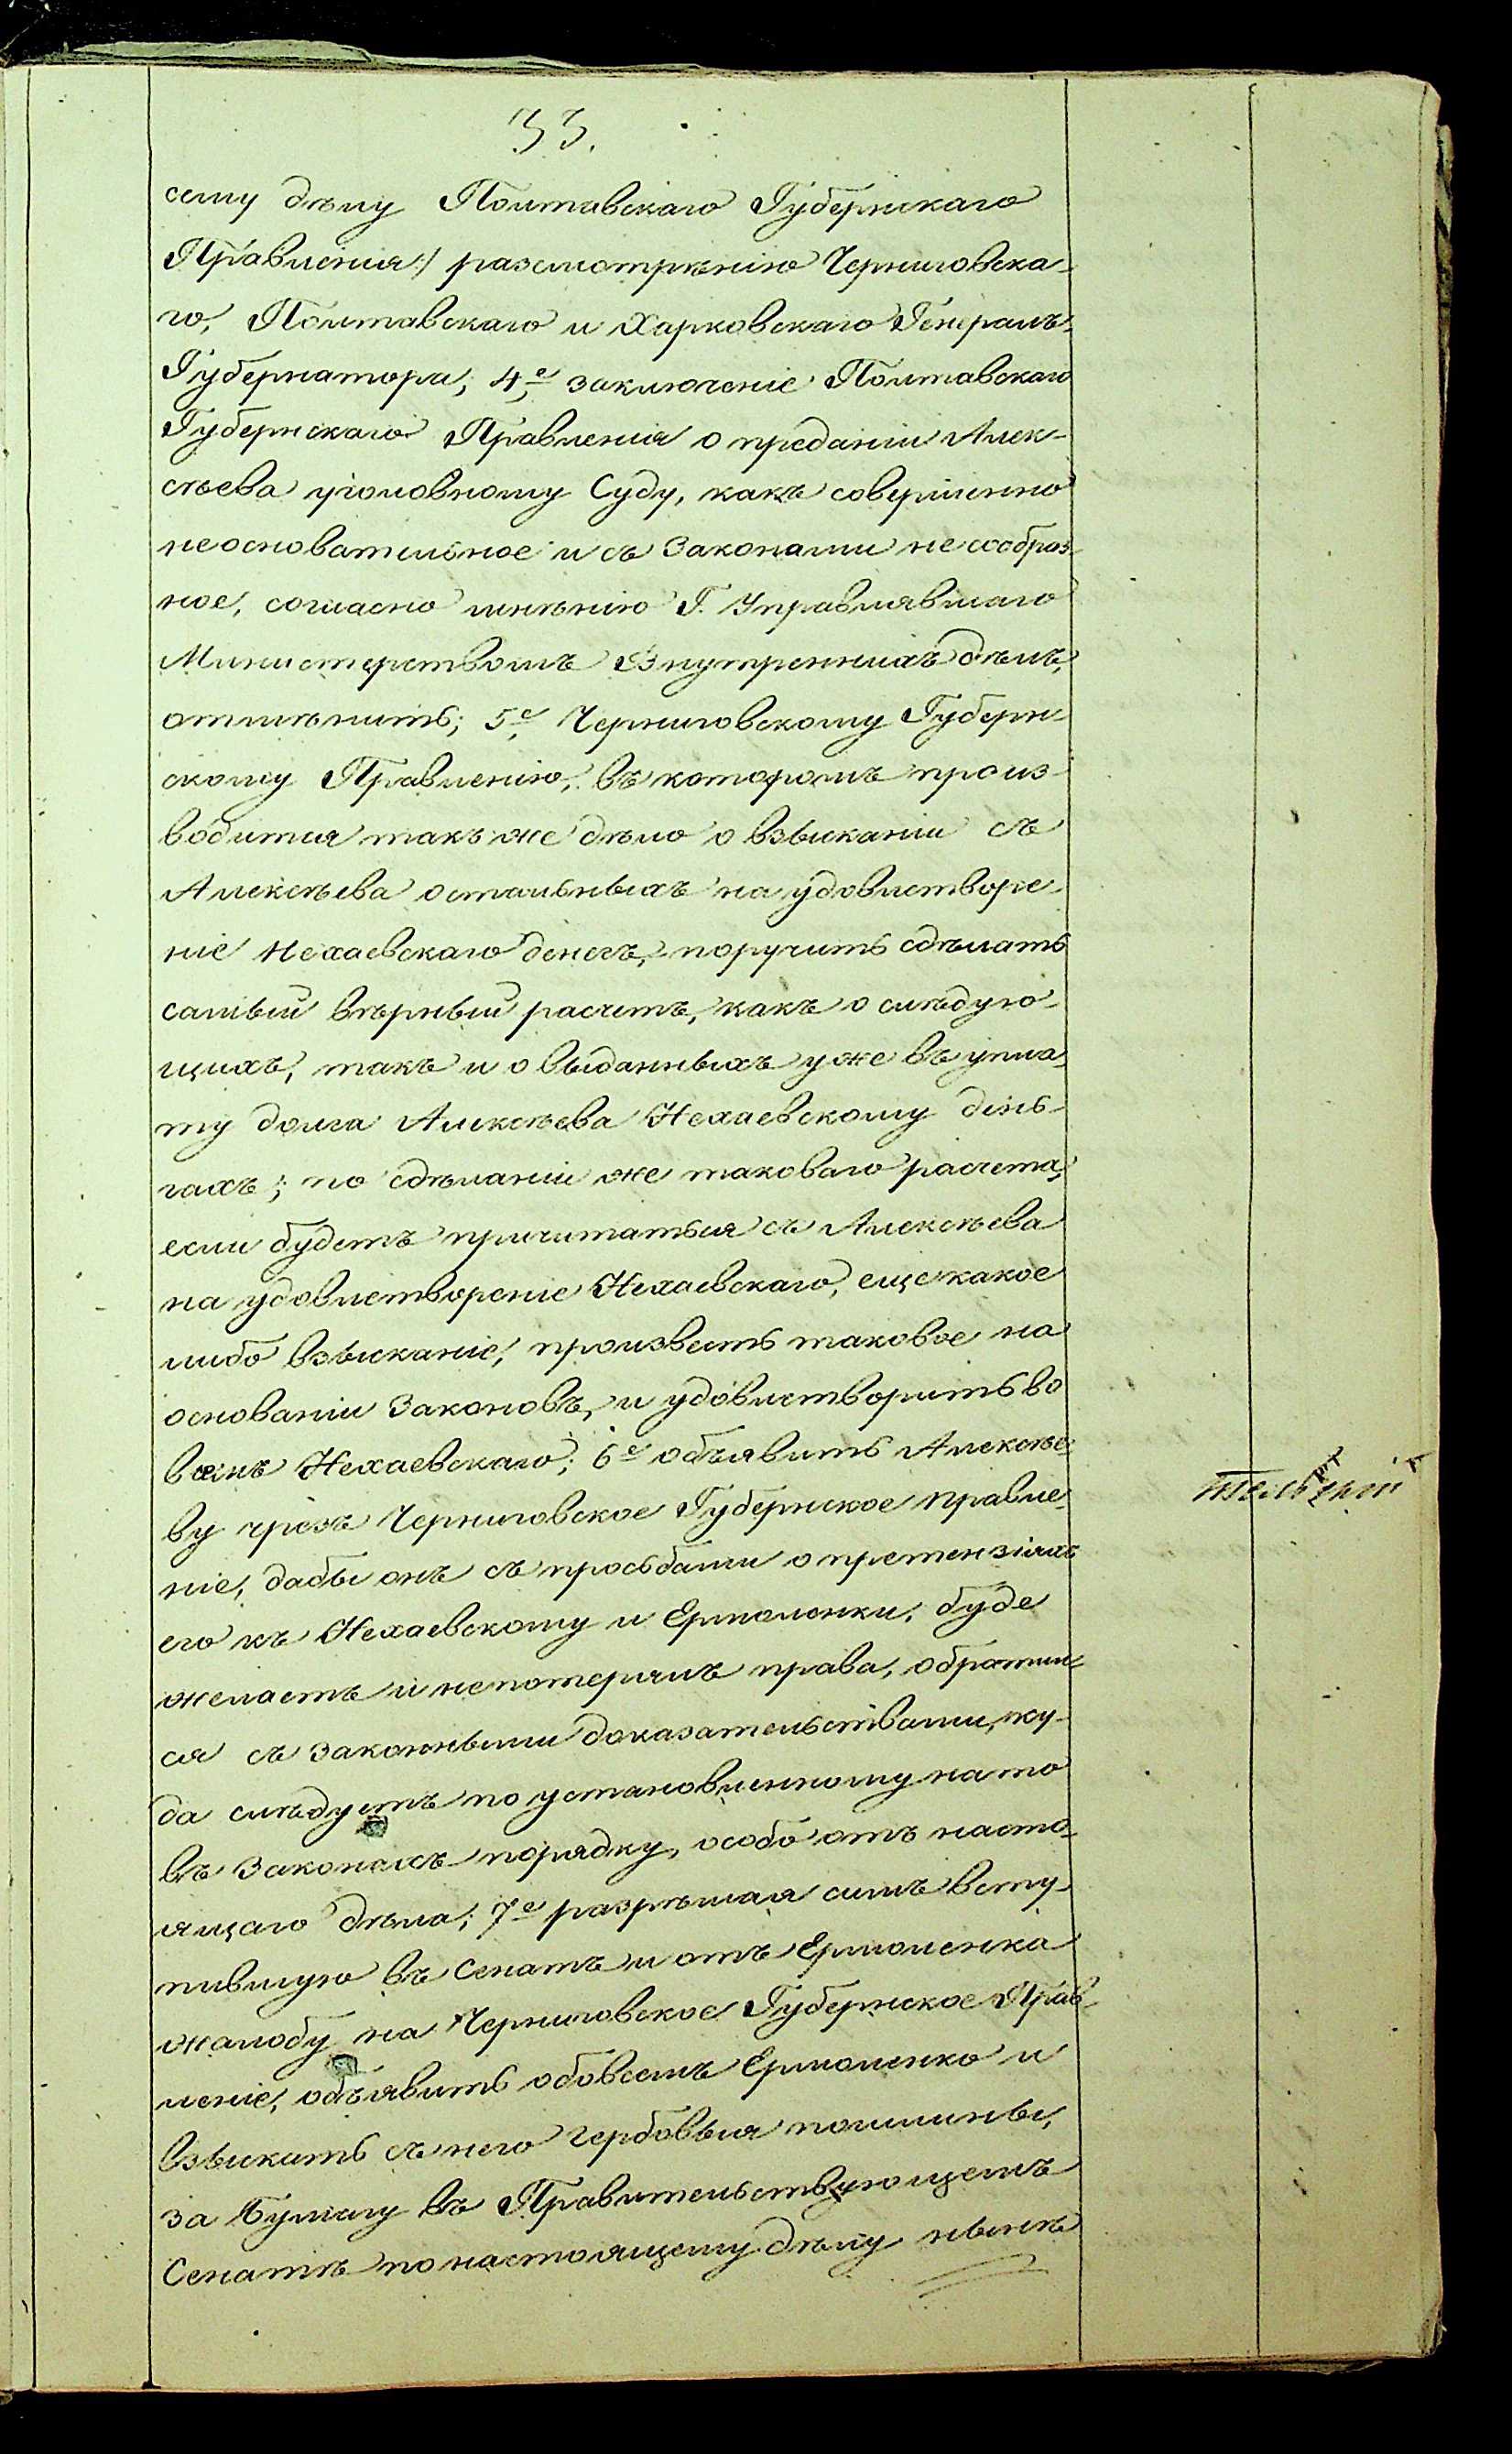 33.
сему дѣлу Полтавскаго Губернскаго
Правленія:/ разсмотрѣнію Черниговска-
го, Полтавскаго и Харковскаго Генералъ-
Губернатора; 4,е заключеніе Полтавскаго
Губернскаго Правленія о преданіи Алек-
сѣева уголовному Суду, какъ совершенно
неосновательное и съ Законами не сообраз-
ное, согласно мнѣнію Г. Управлявшаго
Министерствомъ Внутреннихъ дѣлъ,
отмѣнить; 5,е Черниговскому Губерн-
скому Правленію, въ которомъ произ-
водится такъ же дѣло о взысканіи съ
Алексѣева остальныхъ на удовлетворе-
ніе Нехаевскаго денегъ, поручить сдѣлать
самый вѣрный расчетъ, какъ о слѣдую-
щихъ, такъ и о выданныхъ уже въ упла-
ту долга Алексѣева Нехаевскому день-
гахъ; по сдѣланіи же таковаго расчета,
если будетъ причитаться съ Алексѣева
на удовлетвореніе Нехаевскаго, еще какое
либо взысканіе, произвесть таковое на
основаніи Законовъ, и удовлетворить во
всемъ Нехаевскаго; 6е объявить Алексѣе-
ву чрезъ Черниговское Губернское правле-
ніе, дабы онъ съ просьбами о претензіяхъ
его къ Нехаевскому и Ермоленки, буде
желаетъ и непотерялъ права, обратил-
ся съ законными доказательствами, ку-
да слѣдуетъ по установленному на то
въ Законахъ порядку, особо отъ насто-
ящаго дѣла; 7е разрѣшая симъ всту-
пившую въ Сенатъ и отъ Ермоленка
жалобу на Черниговское Губернское Прав-
леніе, объявить обовсемъ Ермоленко и
взыскать съ него гербовыя пошлины,
за бумагу въ Правительствующемъ
Сенатѣ по настоящему дѣлу нынѣ